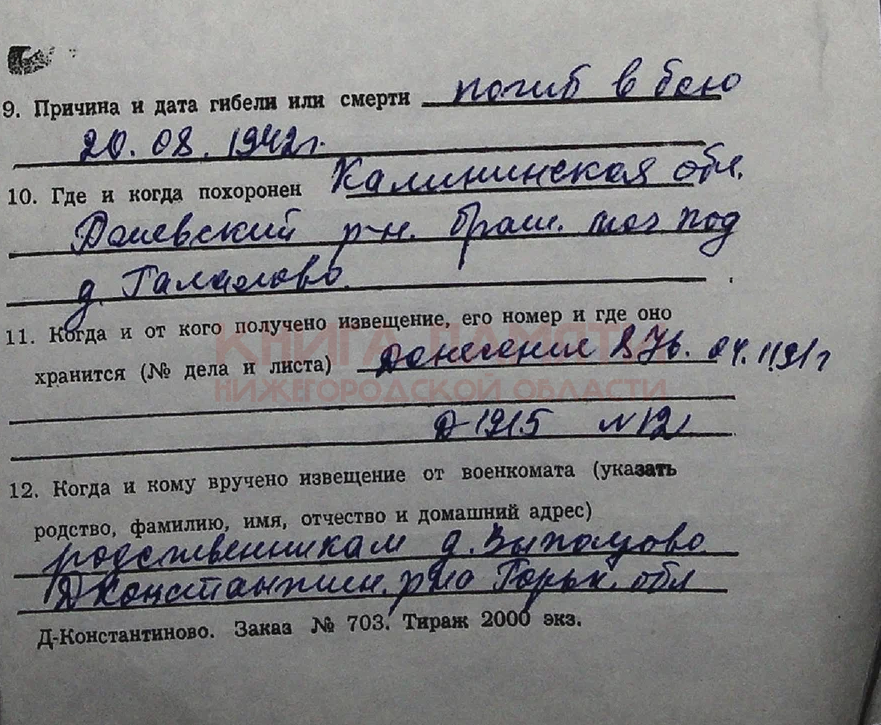 9. Причина и дата гибели или смерти погиб в бою
20.08.1942г.
10. Где и когда похоронен Калининская обл.
р-н. брат. мог под
д. Галахово
11. Когда и от кого получено извещение, его номер и где оно
КНИГА ПАМЯТИ
хранится (№ дела и листа) Донесение
НИЖЕГОРОДСКОЙ ОБЛАСТИ
Д-1215 N 121
12. Когда и кому вручено извещение от военкомата (указать
родство, фамилию, имя, отчество и домашний адрес)
родственникам д.
Д Константин. р-но Горьк. обл
Д-Константиново. Заказ № 703. Тираж 2000 экз.